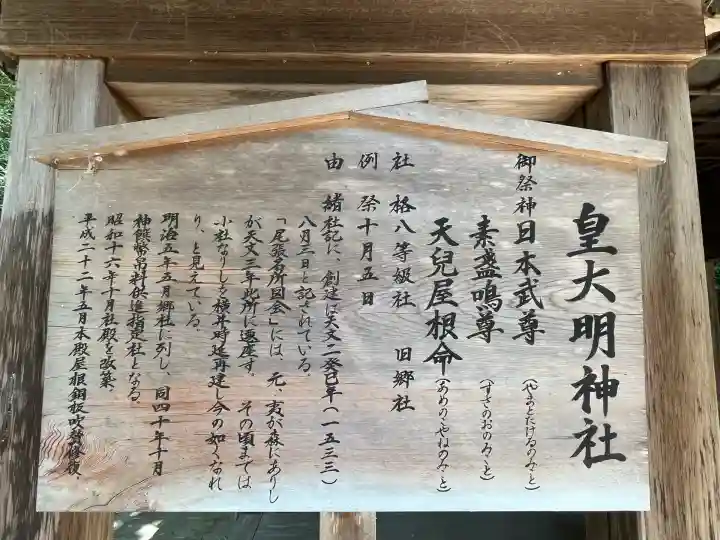 皇大明神社
御祭神 日本武尊(やまとたけるのみこと)
素盞鳴尊(すさのおのみこと)
天兒屋根命(あめのこやねのみこと)
社格 八等級社 旧郷社
例祭 十月五日
由緒 社記に、創建は天文二癸巳年(一五三三)
八月三日と記されている。
「尾張名所図会」には、元、夷が森にありし
が天文三年此所に遷座す。その頃までは
小社なりしを横井時延再建し今の如くなれ
り、と見えている。
明治五年五月郷社に列し、同四十年十月
神饌幣帛料供進指定社となる。
昭和十六年十月社殿を改築。
平成二十二年五月本殿屋根銅板吹替修復、